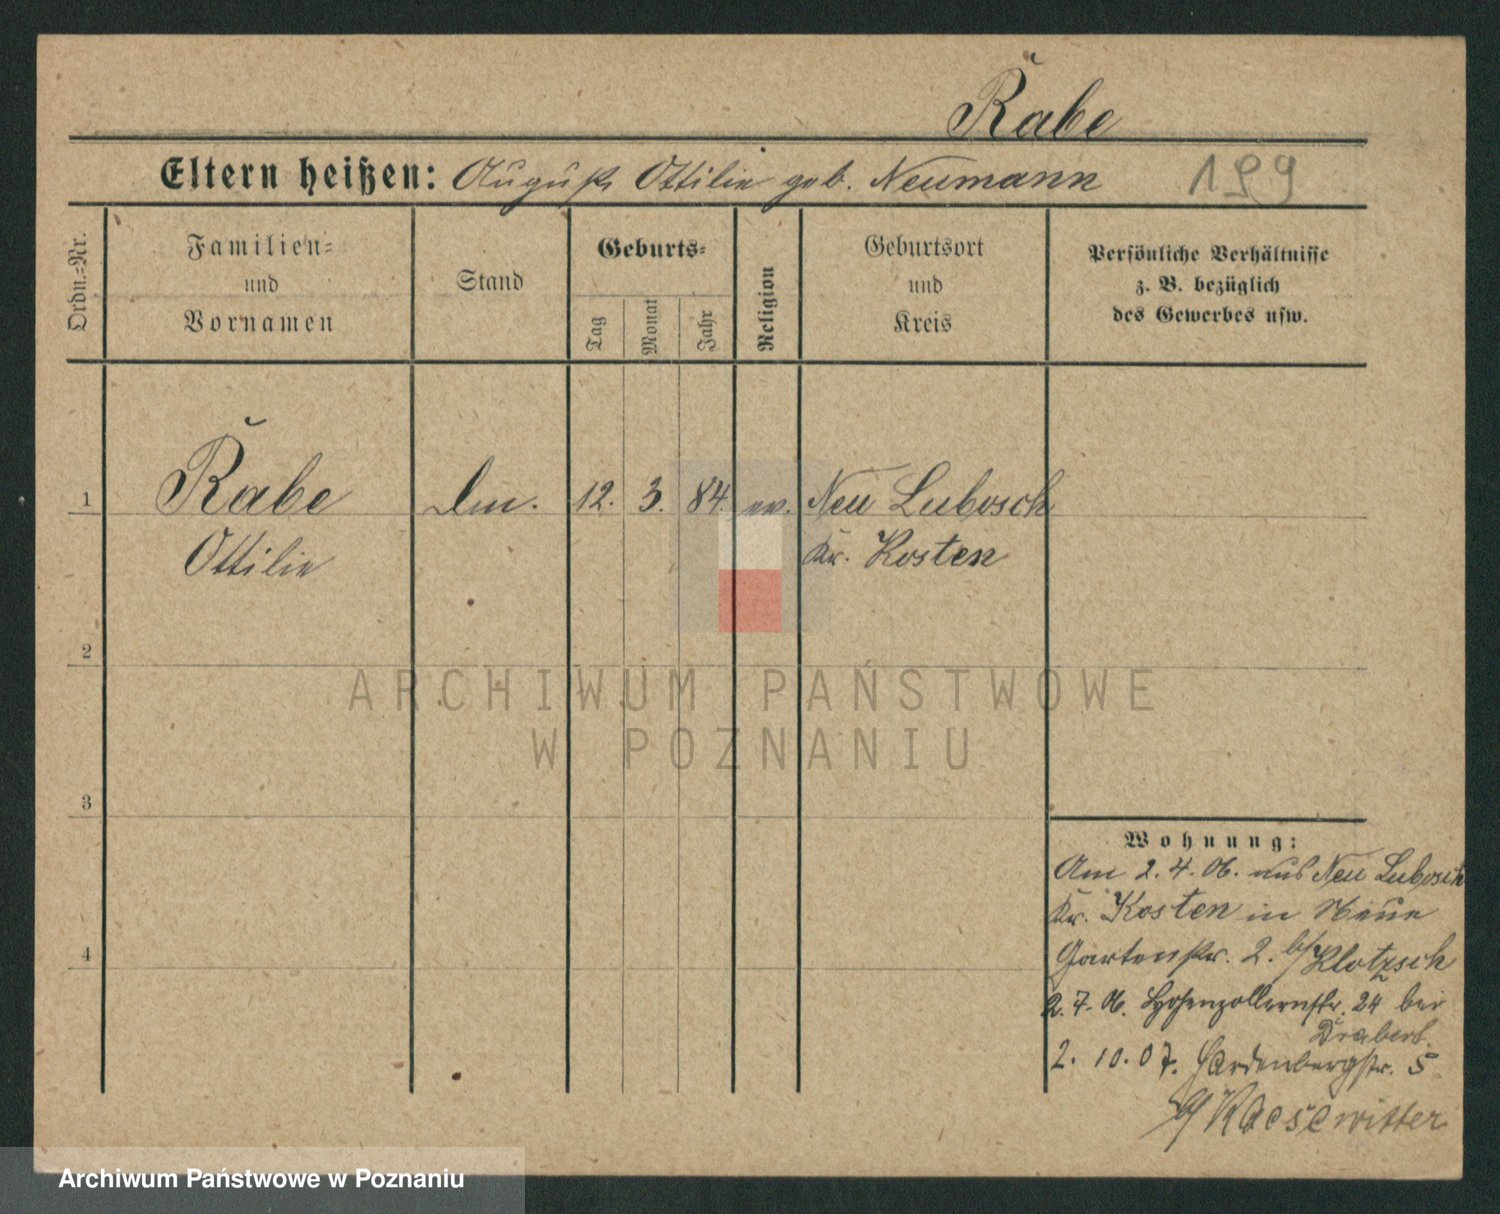 Rabe
Eltern heißen: August, Ottilie geb. Neumann 199
Ordn.=Nr.
Familien=
und
Vornamen
Stand
Geburts=
Tag
Monat
Jahr
Religion
Geburtsort
und
Kreis
Persönliche Verhältnisse
z. B. bezüglich
des Gewerbes usw.
1 Rabe 12. 3. 84. ev. Neu Lubosch
Ottilie Kr. Kosten
2
3
4
Wohnung:
Am 2.4.06. aus Neu Lubosch
Kr. Kosten in Neue
Gartenstr. 2. b/ Klotzsch
2.7.06. Hohenzollernstr. 24 bei
Drabert.
2.10.07. Hardenbergstr. 5
b/ Kaesewitter
ARCHIWUM PAŃSTWOWE
W POZNANIU
Archiwum Państwowe w Poznaniu